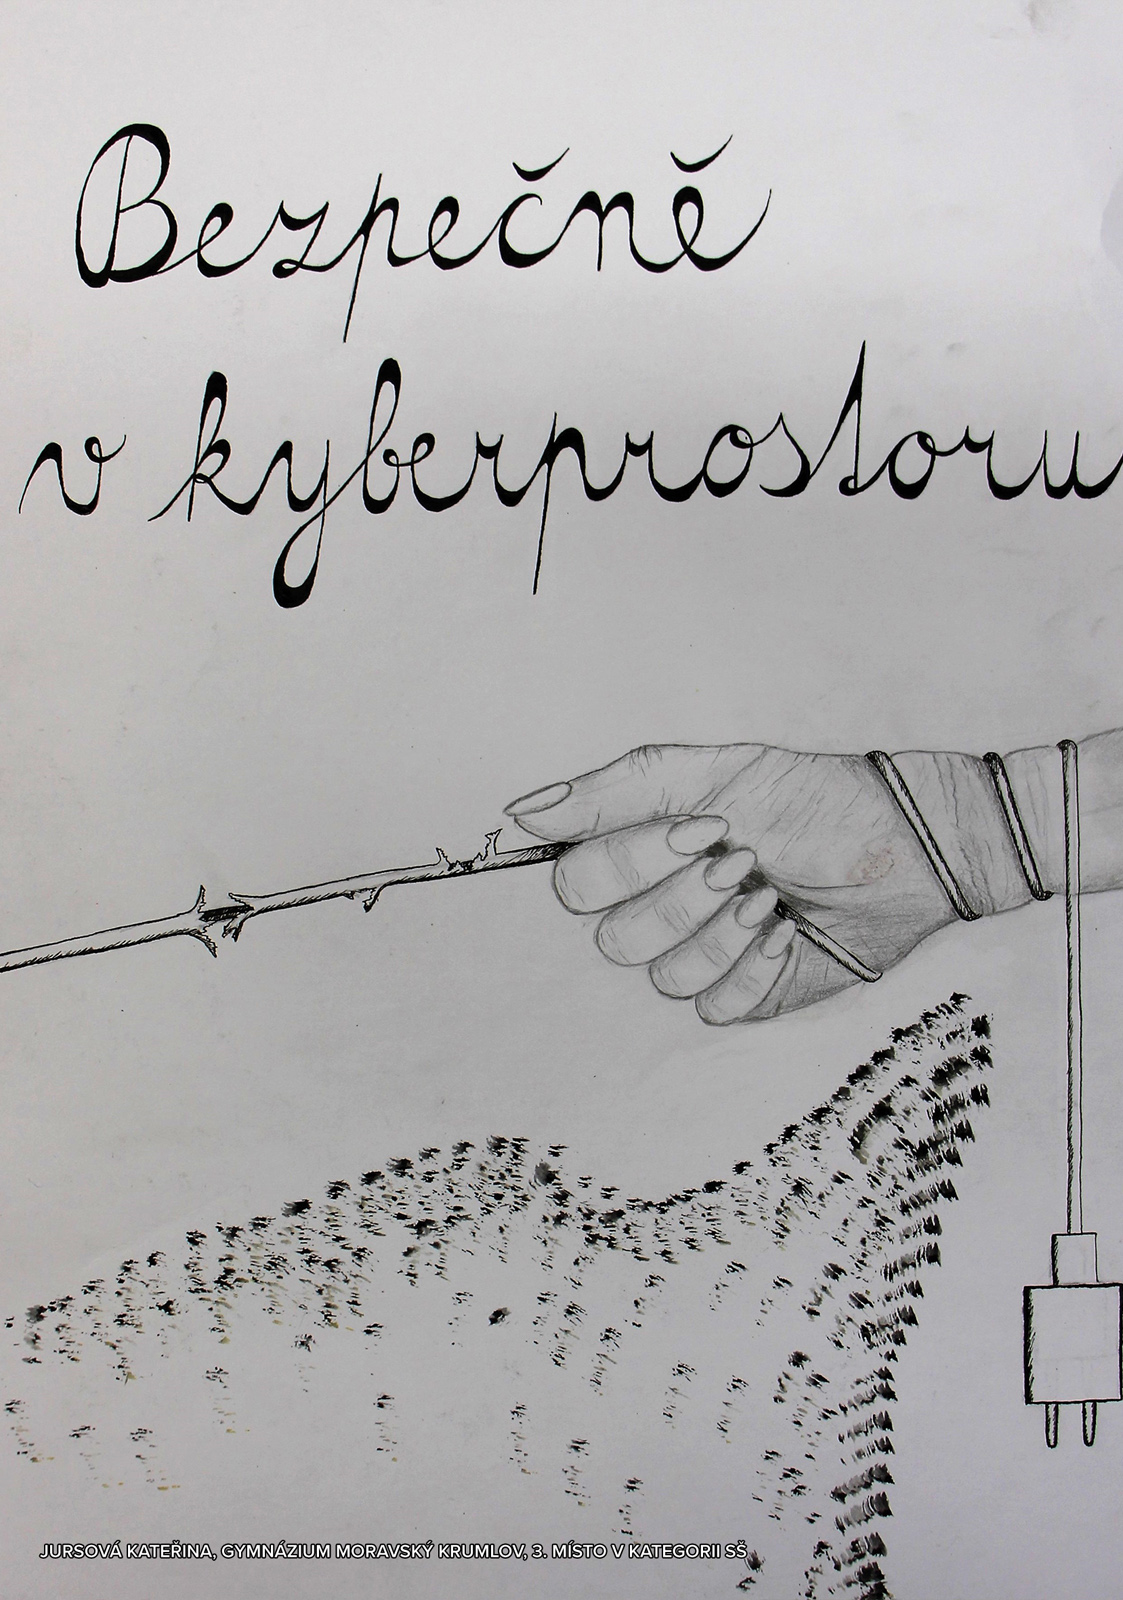 Bezpečně
v kyberprostoru
JURSOVÁ KATEŘINA, GYMNÁZIUM MORAVSKÝ KRUMLOV, 3. MÍSTO V KATEGORII SŠ